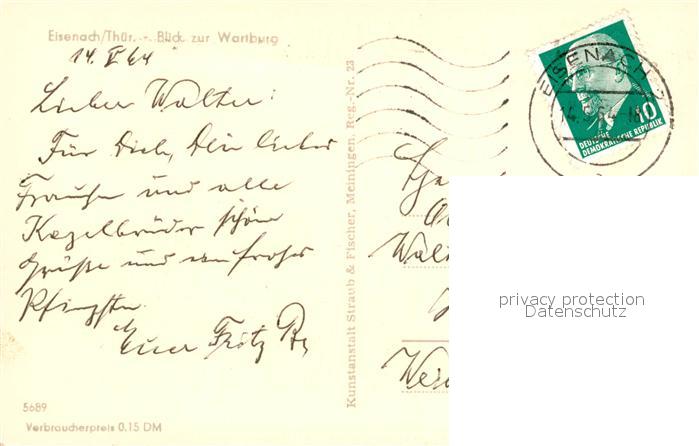 Eisenach/Thür. - Blick zur Wartburg
14. V. 64
Lieber Walter:
Für Dich, Dein liebes
Frauchen und alle
Kegelbrüder schöne
Grüße und ein frohes
Pfingsten.
Euer Fritz
5689
Verbraucherpreis 0,15 DM
Kunstanstalt Straub & Fischer, Meiningen, Reg.-Nr. 23
EISENACH
14.5.64-18
10
DEUTSCHE
DEMOKRATISCHE REPUBLIK
privacy protection
Datenschutz